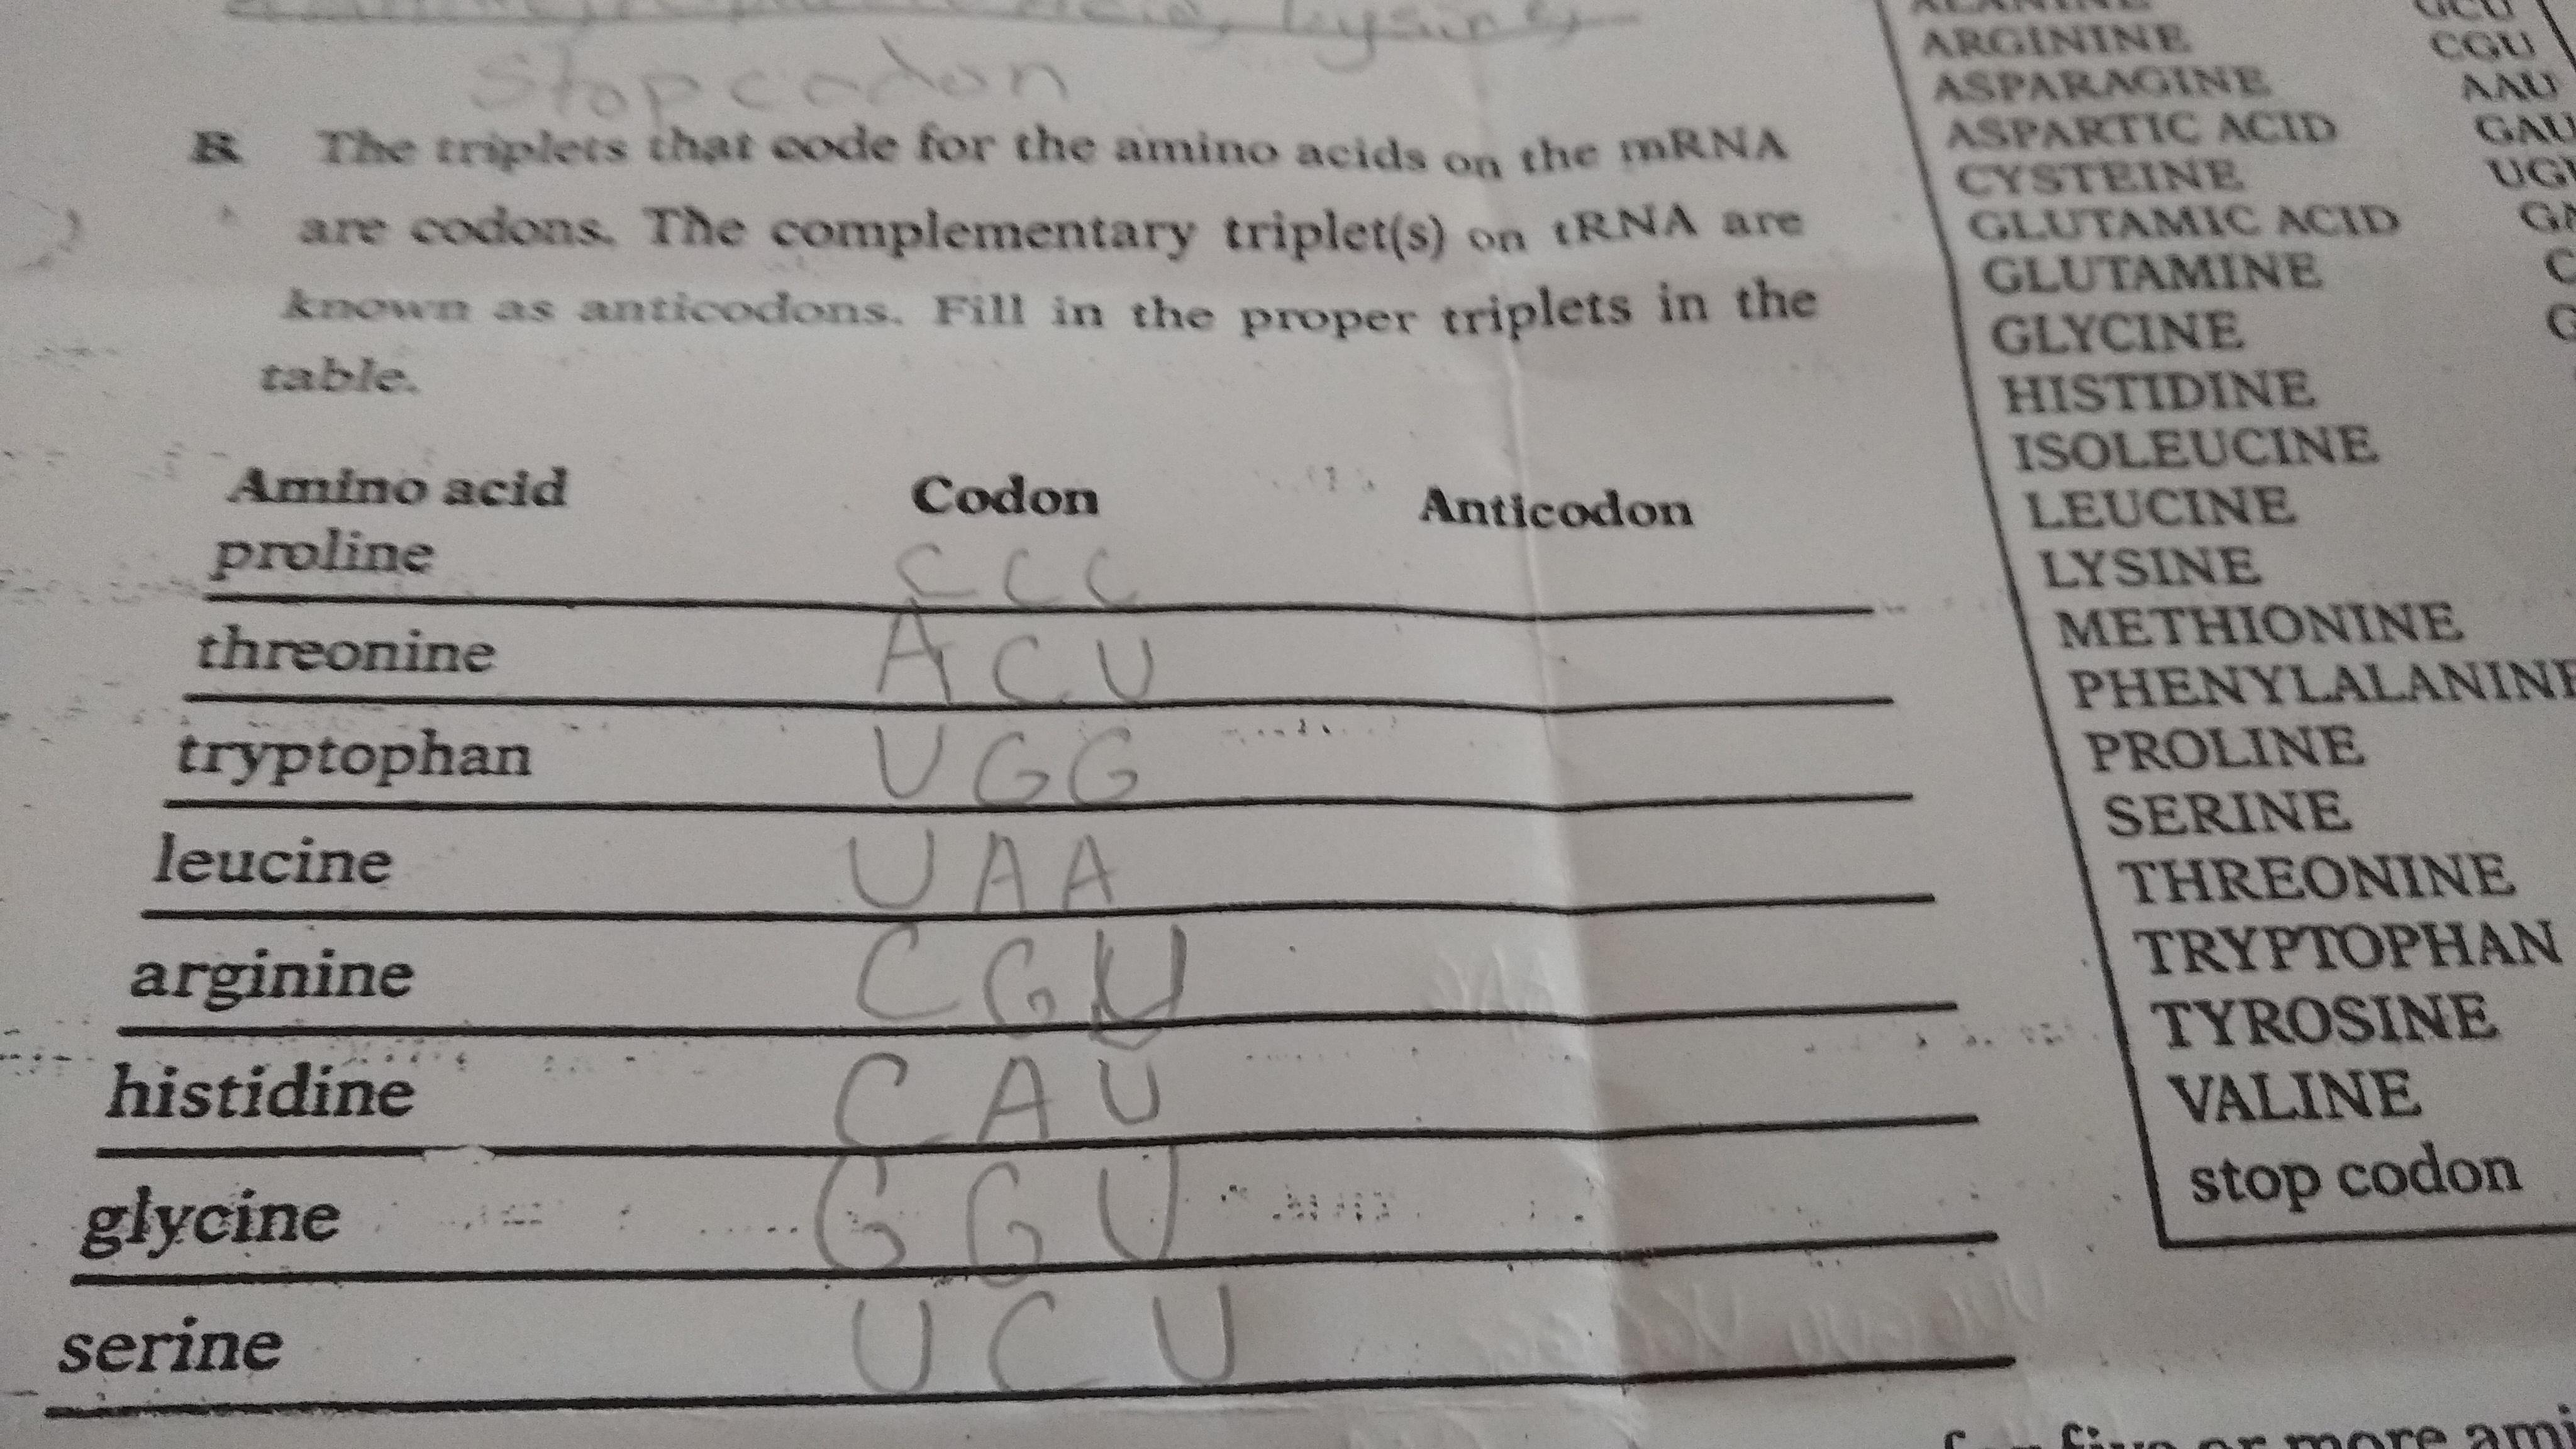 Stop codon
B. The triplets that code for the amino acids on the mRNA
are codons. The complementary triplet(s) on tRNA are
known as anticodons. Fill in the proper triplets in the
table.
Amino acid Codon Anticodon
proline C C C
threonine A C U
tryptophan U G G
leucine U A A
arginine C G U
histidine C A U
glycine G G U
serine U C U
ALANINE GCU
ARGININE CGU
ASPARAGINE AAU
ASPARTIC ACID GAU
CYSTEINE
GLUTAMIC ACID
GLUTAMINE
GLYCINE
HISTIDINE
ISOLEUCINE
LEUCINE
LYSINE
METHIONINE
PHENYLALANINE
PROLINE
SERINE
THREONINE
TRYPTOPHAN
TYROSINE
VALINE
stop codon
five or more